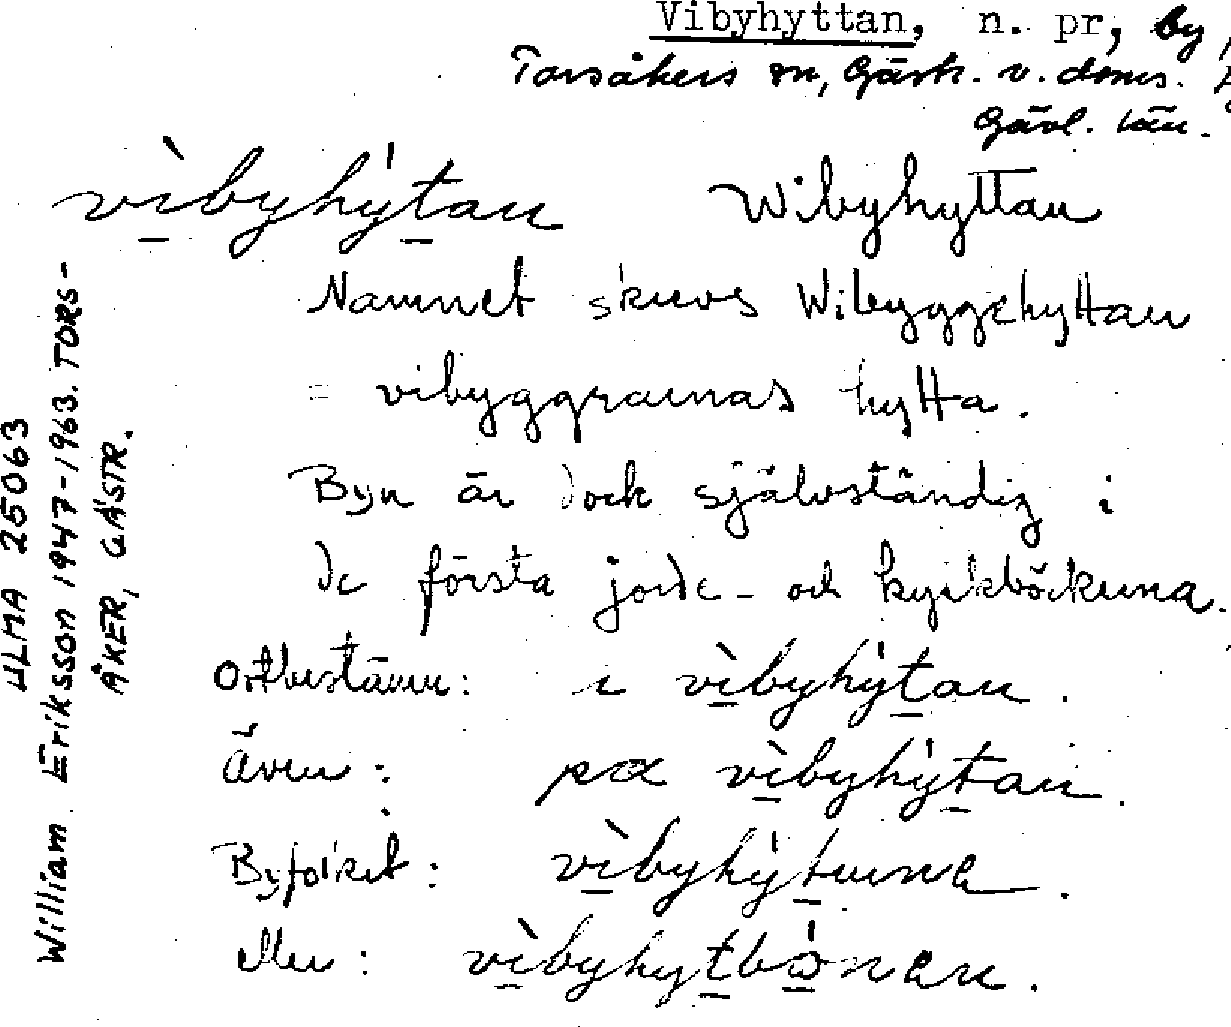 Vibyhyttan, n. pr, by,
Torsåkers sn, Gästr. v. doms.
Gävl. län.
vìbyhýtan Wibyhyttan
Namnet skrevs Wibyggehyttan
= vibyggrarnas hytta.
Byn är dock självständig i
de första jorde- och kyrkböckerna.
Ortbestämn: i vìbyhýtan.
Även: pa vìbyhýtan.
Byfolket: vìbyhýtuna.
eller: vìbyhytbönen.
ULMA 25063
William Eriksson 1947-1963. TORS-
ÅKER, GÄSTR.